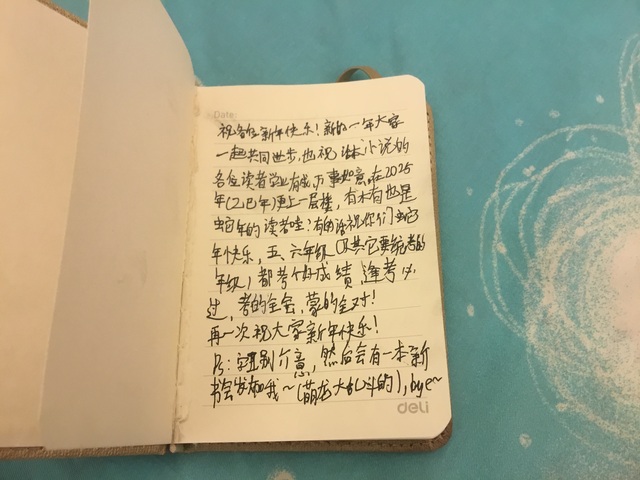 Date:
祝各位新年快乐！新的一年大家
一起共同进步，也祝读本小说的
各位读者学业有成，万事如意，在2025
年（乙巳年）更上一层楼，有木有也是
蛇年的读者哇？有的话祝你们蛇
年快乐，五、六年级（及其它要统考的
年级）都考个好成绩，逢考必
过，考的全会，蒙的全对！
再一次祝大家新年快乐！
Ps：字丑别介意，然后会有一本新
书会发布哦～（萌龙大乱斗的），bye～
deli